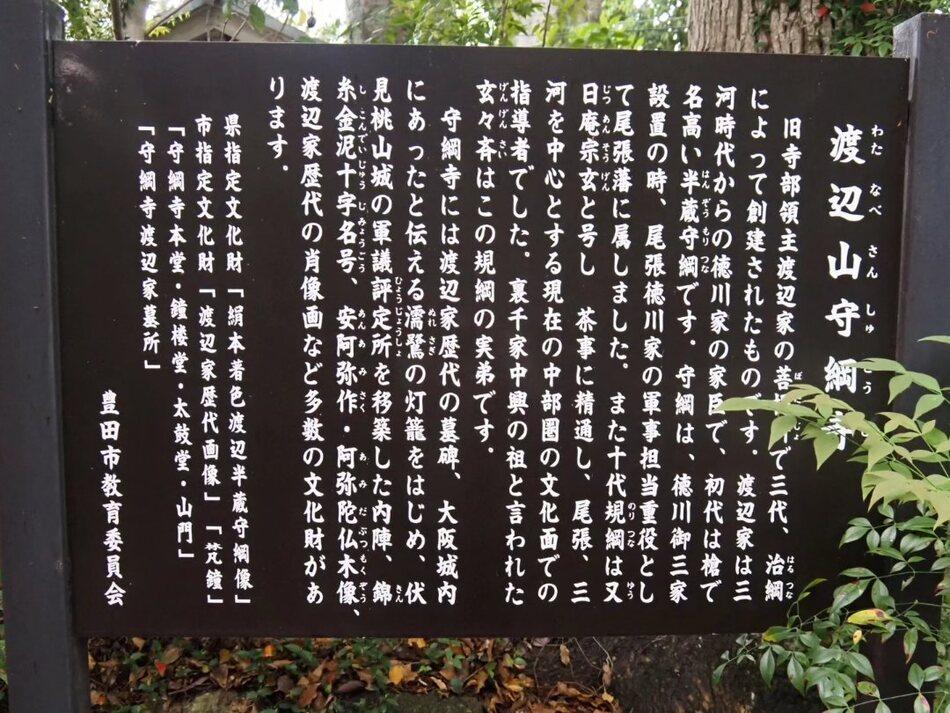 渡辺山守綱寺
旧寺部領主渡辺家の菩で三代、治綱
によって創建されたものです。渡辺家は三
河時代からの徳川家の家臣で、初代は槍で
名高い半蔵守綱です。守綱は、徳川御三家
設置の時、尾張徳川家の軍事担当重役とし
て尾張藩に属しました。また十代規綱は又
日庵宗玄と号し 茶事に精通し、尾張、三
河を中心とする現在の中部圏の文化面での
指導者でした。裏千家中興の祖と言われた
玄々斉はこの規綱の実弟です。
守綱寺には渡辺家歴代の墓碑、大阪城内
にあったと伝える濡鷺の灯籠をはじめ、伏
見桃山城の軍議評定所を移築した内陣、錦
糸金泥十字名号、安阿弥作・阿弥陀仏木像、
渡辺家歴代の肖像画など多数の文化財があ
ります。
県指定文化財「絹本著色渡辺半蔵守綱像」
市指定文化財「渡辺家歴代画像」「梵鐘」
「守綱寺本堂・鐘楼堂・太鼓堂・山門」
「守綱寺渡辺家墓所」
豊田市教育委員会